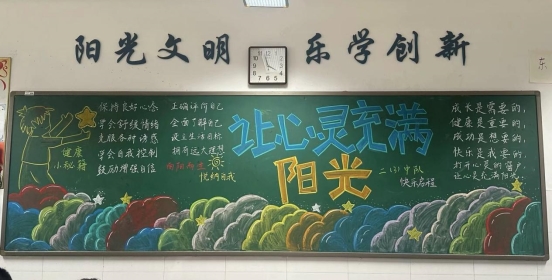 阳光文明 乐学创新
保持良好心态
学会舒缓情绪
克服各种诱惑
学会自我控制
鼓励增强自信
健康
小秘籍
正确评价自己
全面了解自己
设立生活目标
拥有远大理想
向阳而生
悦纳自我
让心灵充满
阳光
二(3)中队
快乐启程
成长是需要的,
健康是重要的,
成功是想要的,
快乐是我要的,
打开心灵的窗户,
让心灵充满阳光。
东